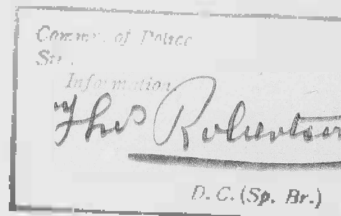 Commr. of Police
Sir,
Information.
Thos Robertson
D. C. (Sp. Br.)